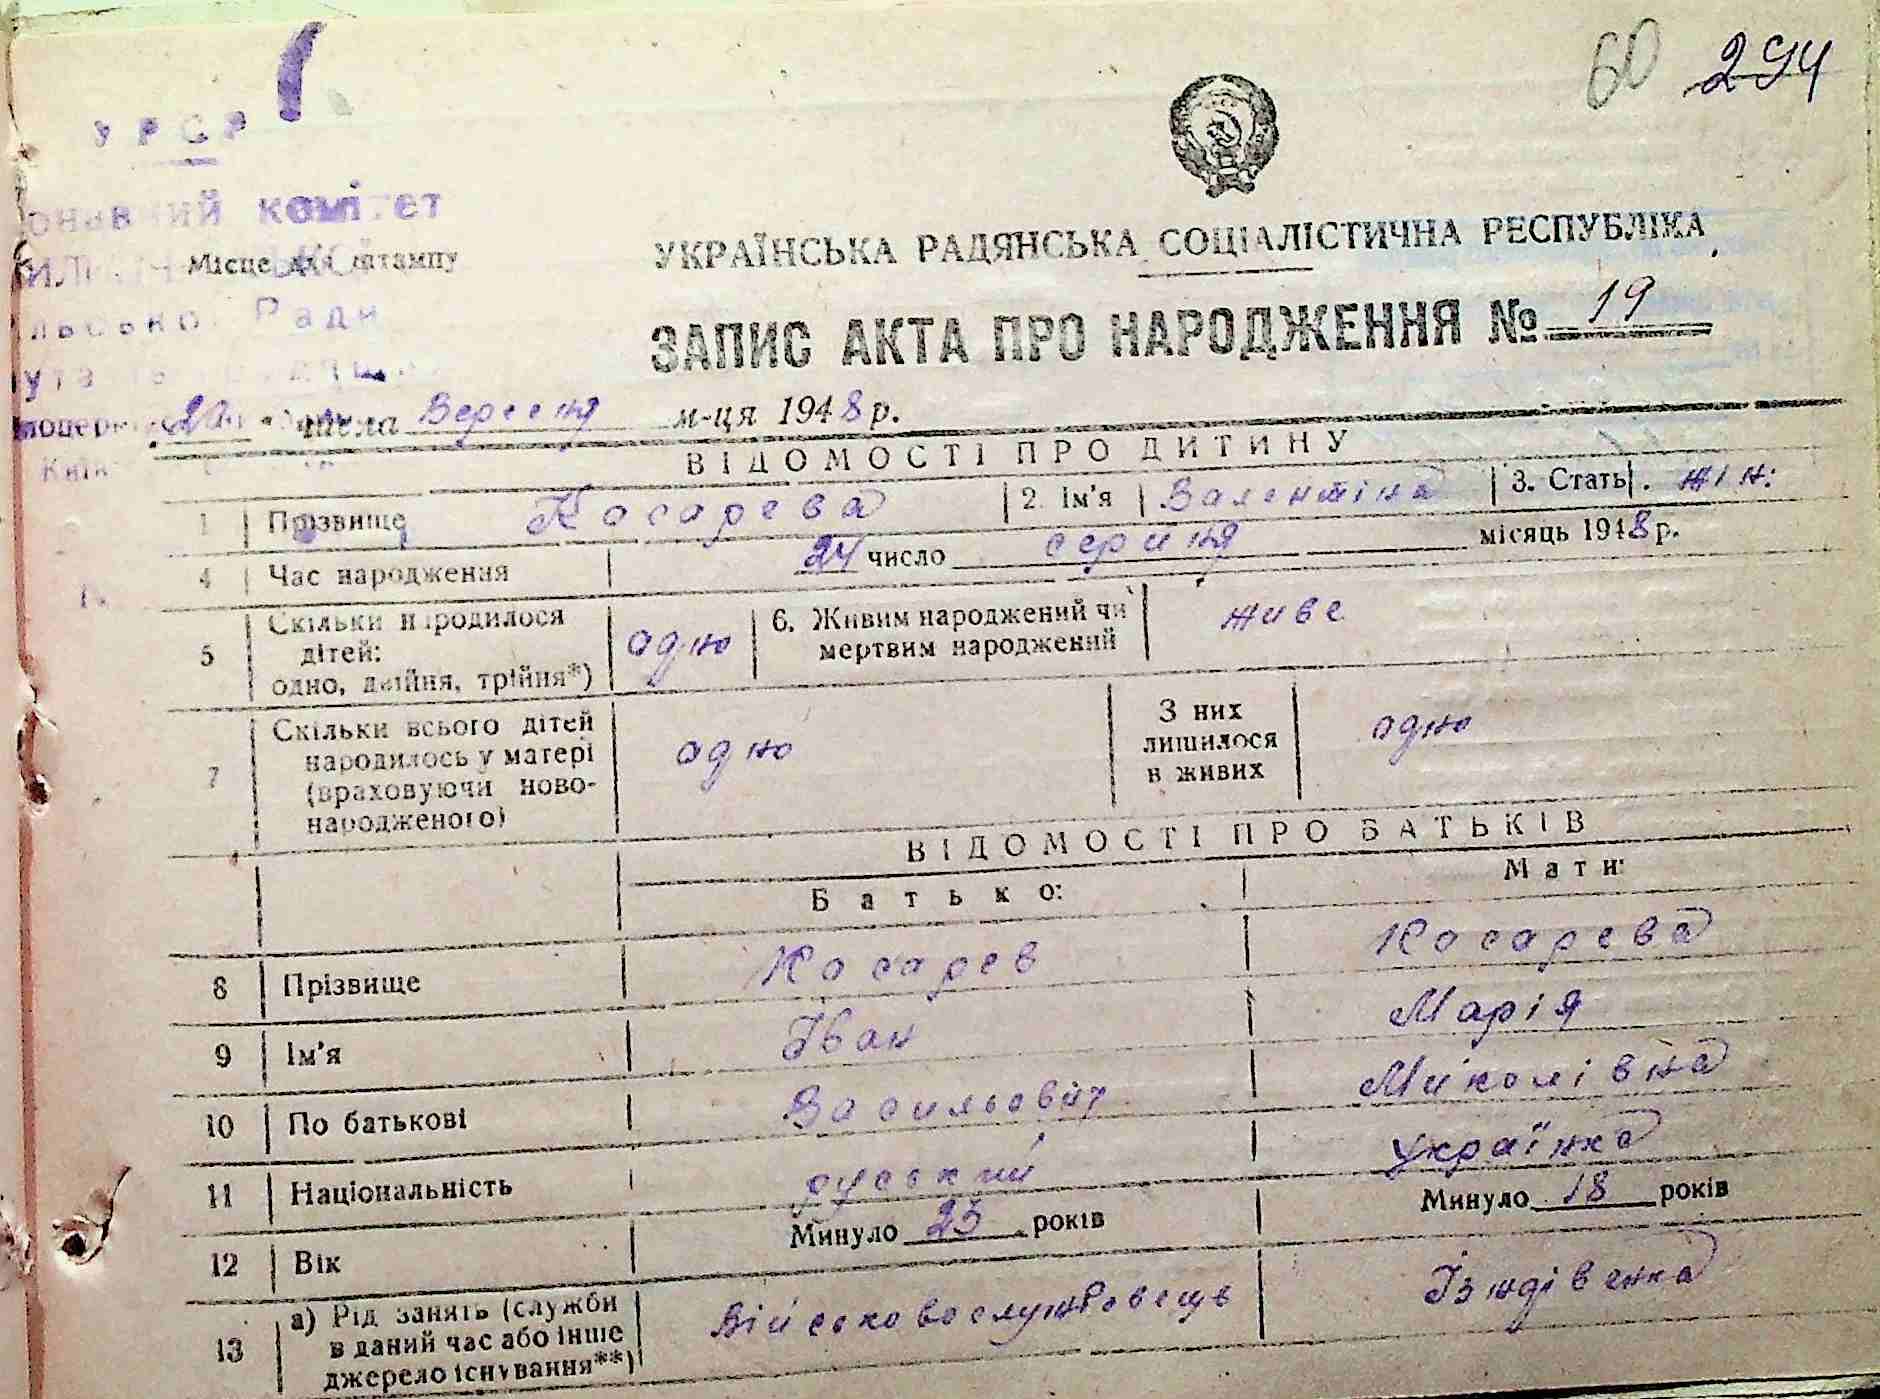 60 294
УРСР
комітет
Місце для штампу
Ради
УКРАЇНСЬКА РАДЯНСЬКА СОЦІАЛІСТИЧНА РЕСПУБЛІКА
ЗАПИС АКТА ПРО НАРОДЖЕННЯ № 19
20 числа Вересня м-ця 1948 р.
ВІДОМОСТІ ПРО ДИТИНУ
1 Прізвище Косарева 2. Ім'я Валентіна 3. Стать жін.
4 Час народження 24 число серпня місяць 1948 р.
5 Скільки народилося дітей: одно, двійня, трійня*) одно 6. Живим народжений чи мертвим народжений живе
7 Скільки всього дітей народилось у матері (враховуючи новонародженого) одно З них лишилося в живих одно
ВІДОМОСТІ ПРО БАТЬКІВ
Батько: Мати:
8 Прізвище Косарев Косарева
9 Ім'я Іван Марія
10 По батькові Васильовіч Миколівна
11 Національність руський українка
12 Вік Минуло 25 років Минуло 18 років
13 а) Рід занять (служби в даний час або інше джерело існування**) Військовослужбовець Іздівенка